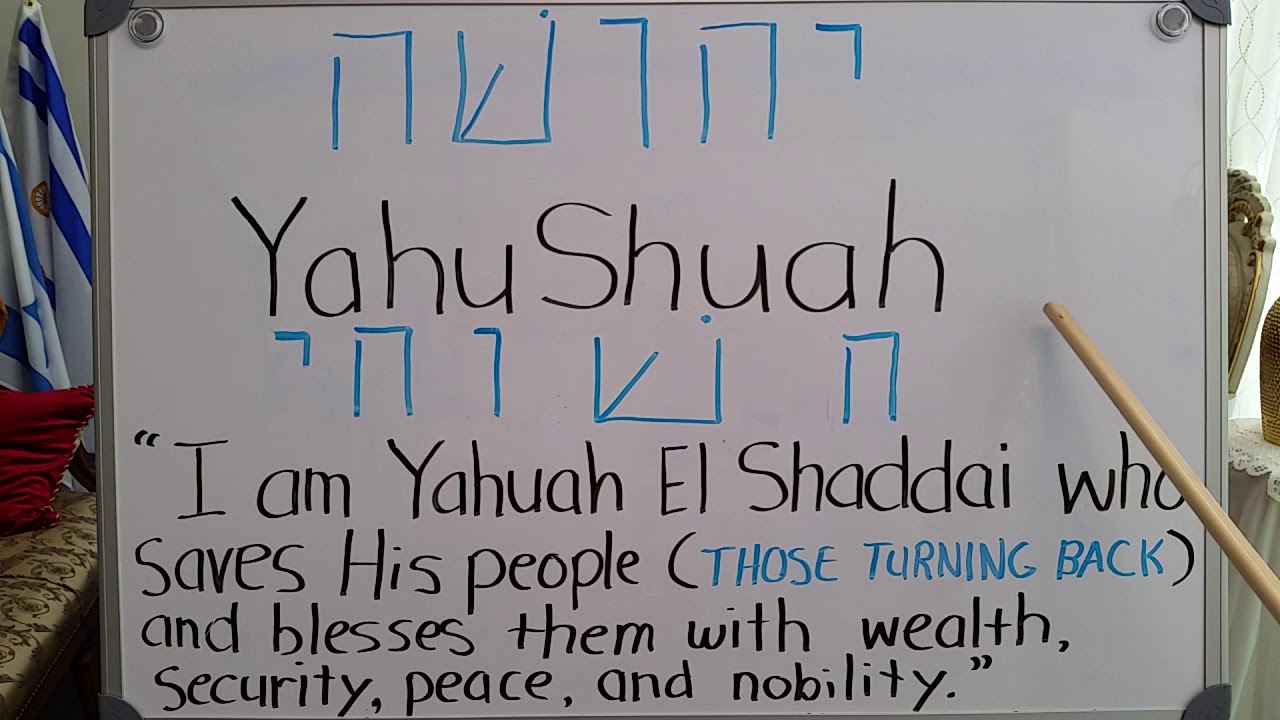 יהושׁה
YahuShuah
י ה ו שׁ ה
“I am Yahuah El Shaddai who
saves His people (THOSE TURNING BACK)
and blesses them with wealth,
security, peace, and nobility.”